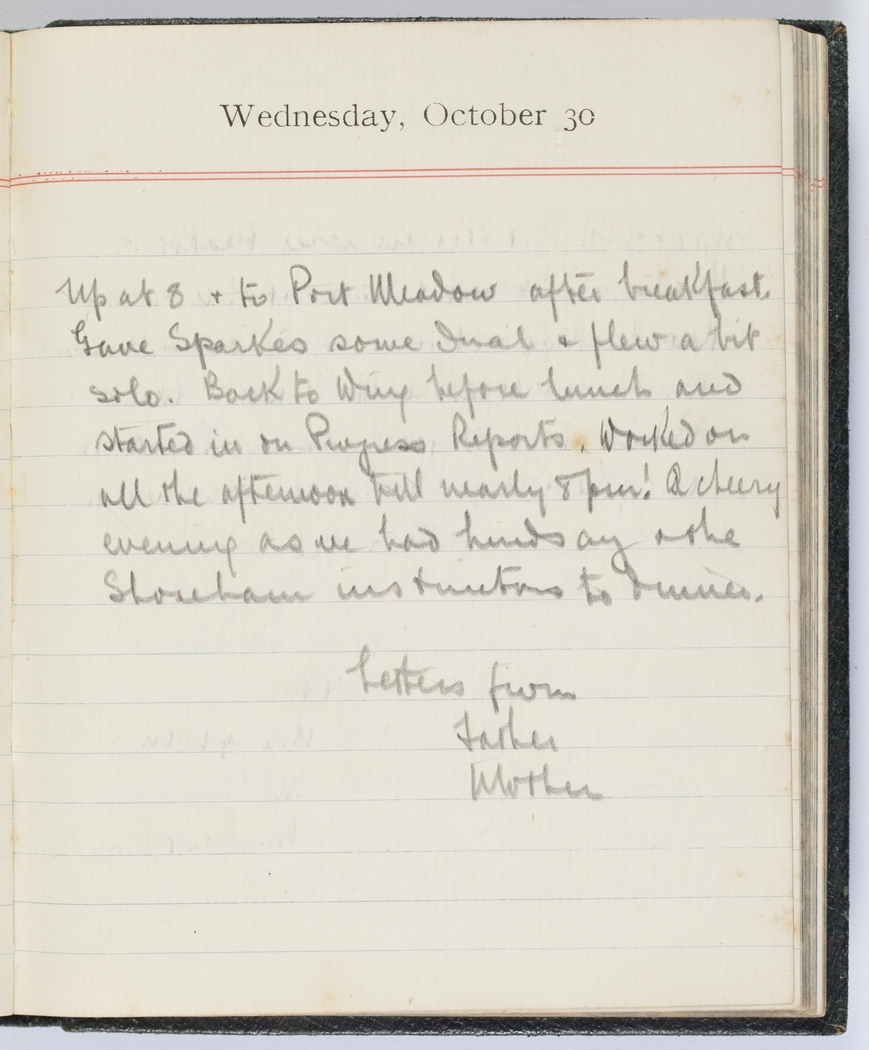 Wednesday, October 30
Up at 8 + to Port Meadow after breakfast.
Gave Sparkes some Dual & flew a bit
solo. Back to Wing before lunch and
started in on Progress Reports. Worked on
all the afternoon till nearly 8 pm! A cheery
evening as we had Lindsay & the
Shoreham instructors to dinner.
Letters from
Father
Mother